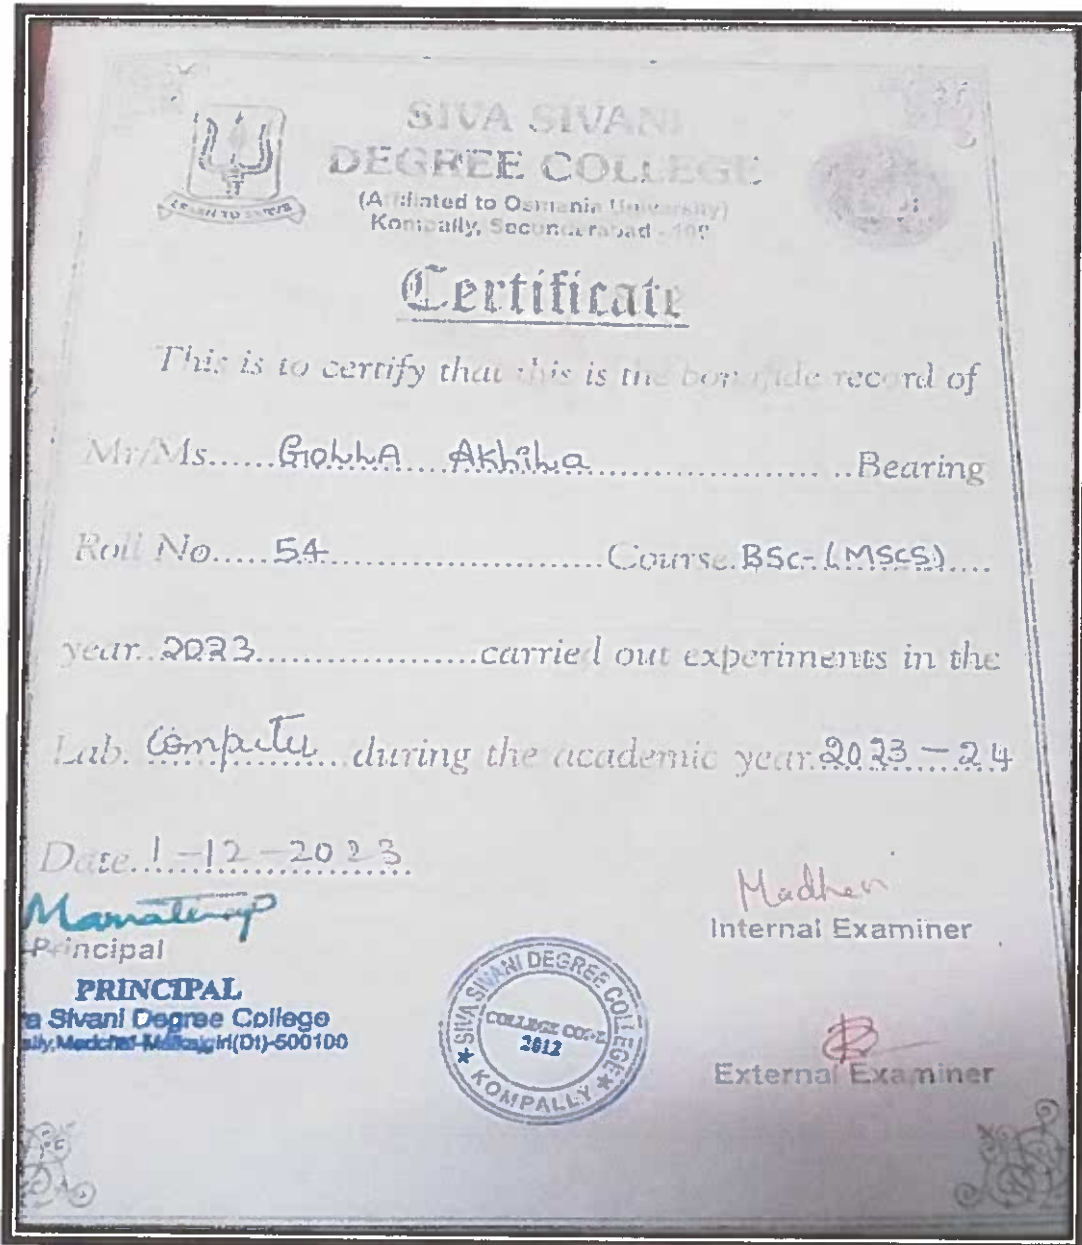 SIVA SIVANI
DEGREE COLLEGE
(Affiliated to Osmania University)
Kompally, Secunderabad - 100
LEARN TO SERVE
Certificate
This is to certify that this is the bonafide record of
Mr/Ms......GOLLA AKhiLa.......................Bearing
Roll No.....54............................Course.BSc-(MSCS)....
year..2023......................carried out experiments in the
Lab. Computer during the academic year.2023-24
Date.1-12-2023
Principal
PRINCIPAL
a Sivani Degree College
ally,Medchal-Malkajgiri(Dt)-500100
Madhavi
Internal Examiner
SIVA SIVANI DEGREE COLLEGE
COLLEGE CODE
2012
★ KOMPALLY ★
External Examiner